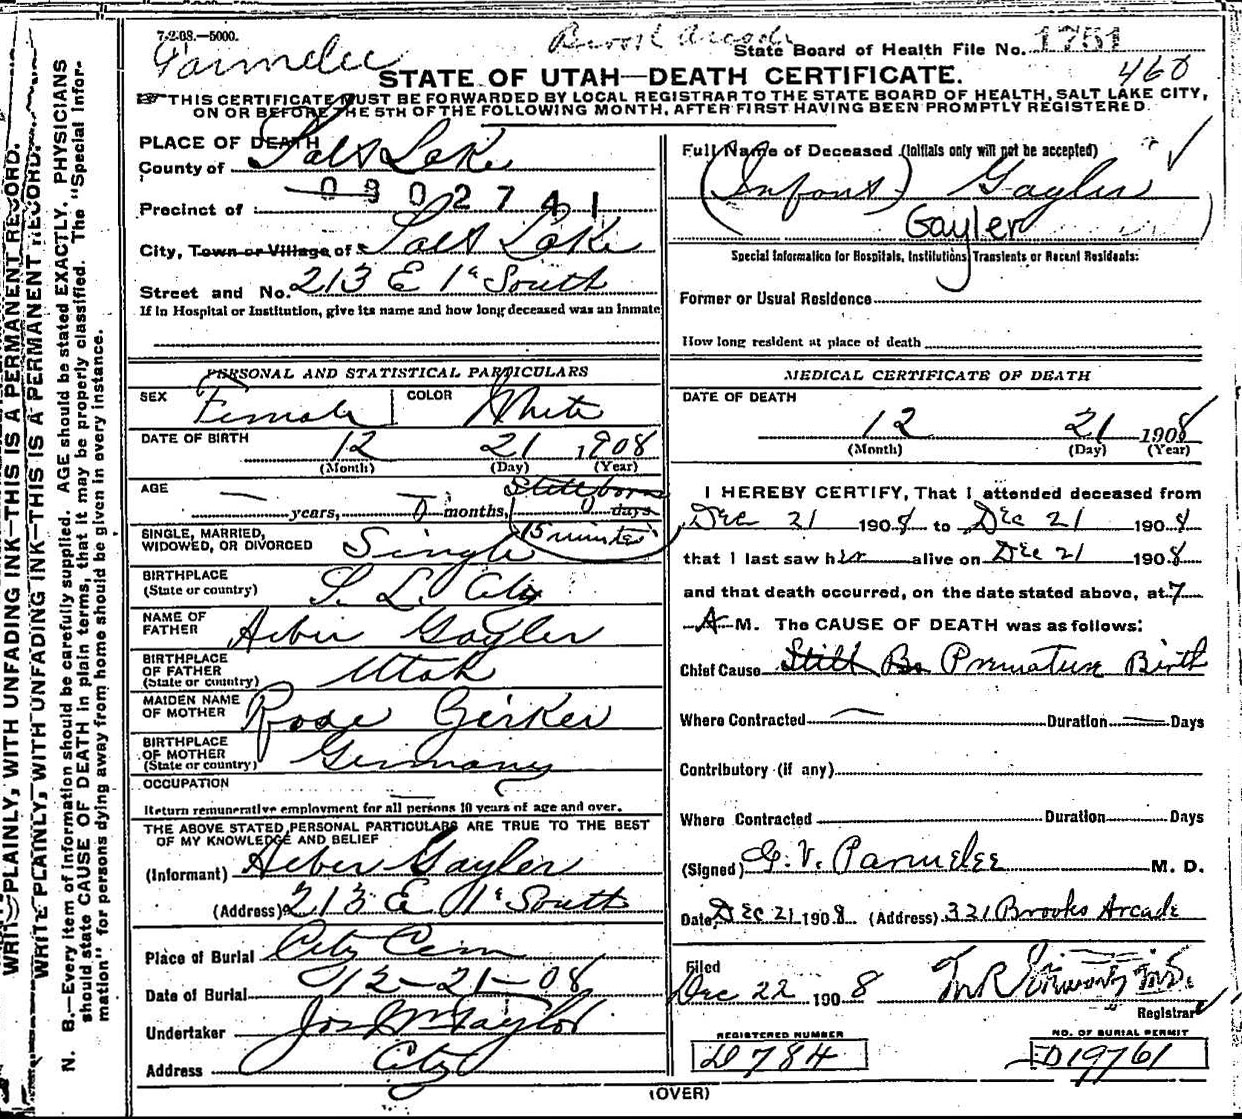 7-2-08.—5000.
Parmelee
Brook Arcade
State Board of Health File No. 1751
460
STATE OF UTAH—DEATH CERTIFICATE.
THIS CERTIFICATE MUST BE FORWARDED BY LOCAL REGISTRAR TO THE STATE BOARD OF HEALTH, SALT LAKE CITY,
ON OR BEFORE THE 5TH OF THE FOLLOWING MONTH, AFTER FIRST HAVING BEEN PROMPTLY REGISTERED.
WRITE PLAINLY, WITH UNFADING INK—THIS IS A PERMANENT RECORD.
WRITE PLAINLY, WITH UNFADING INK—THIS IS A PERMANENT RECORD.
N. B.—Every item of information should be carefully supplied. AGE should be stated EXACTLY. PHYSICIANS
should state CAUSE OF DEATH in plain terms, that it may be properly classified. The "Special Infor-
mation" for persons dying away from home should be given in every instance.
PLACE OF DEATH
County of Salt Lake
0902741
Precinct of
City, Town or Village of Salt Lake
Street and No. 213 E 1st South
If in Hospital or Institution, give its name and how long deceased was an inmate
PERSONAL AND STATISTICAL PARTICULARS
SEX Female COLOR White
DATE OF BIRTH 12 21 1908
(Month) (Day) (Year)
Stillborn
AGE — years, 0 months, 0 days
15 minutes
SINGLE, MARRIED,
WIDOWED, OR DIVORCED Single
BIRTHPLACE
(State or country) S. L. City
NAME OF
FATHER Heber Gayler
BIRTHPLACE
OF FATHER
(State or country) Utah
MAIDEN NAME
OF MOTHER Rose Gerker
BIRTHPLACE
OF MOTHER
(State or country) Germany
OCCUPATION —
Return remunerative employment for all persons 10 years of age and over.
THE ABOVE STATED PERSONAL PARTICULARS ARE TRUE TO THE BEST
OF MY KNOWLEDGE AND BELIEF
(Informant) Heber Gayler
(Address) 213 E 1st South
Place of Burial City Cem
Date of Burial 12-21-08
Undertaker Jos Wm Taylor
Address City
Full Name of Deceased (Initials only will not be accepted)
(Infant) Gayler
Gayler
Special Information for Hospitals, Institutions, Transients or Recent Residents:
Former or Usual Residence
How long resident at place of death
MEDICAL CERTIFICATE OF DEATH
DATE OF DEATH
12 21 1908
(Month) (Day) (Year)
I HEREBY CERTIFY, That I attended deceased from
Dec 21 1908 to Dec 21 1908
that I last saw her alive on Dec 21 1908
and that death occurred, on the date stated above, at 7
A M. The CAUSE OF DEATH was as follows:
Chief Cause Still Bo Premature Birth
Where Contracted — Duration — Days
Contributory (if any)
Where Contracted Duration Days
(Signed) G. V. Parmelee M. D.
Date, Dec 21 1908 (Address) 321 Brooks Arcade
Filed
Dec 22 1908
Registrar
REGISTERED NUMBER
D 784
NO. OF BURIAL PERMIT
D19761
(OVER)